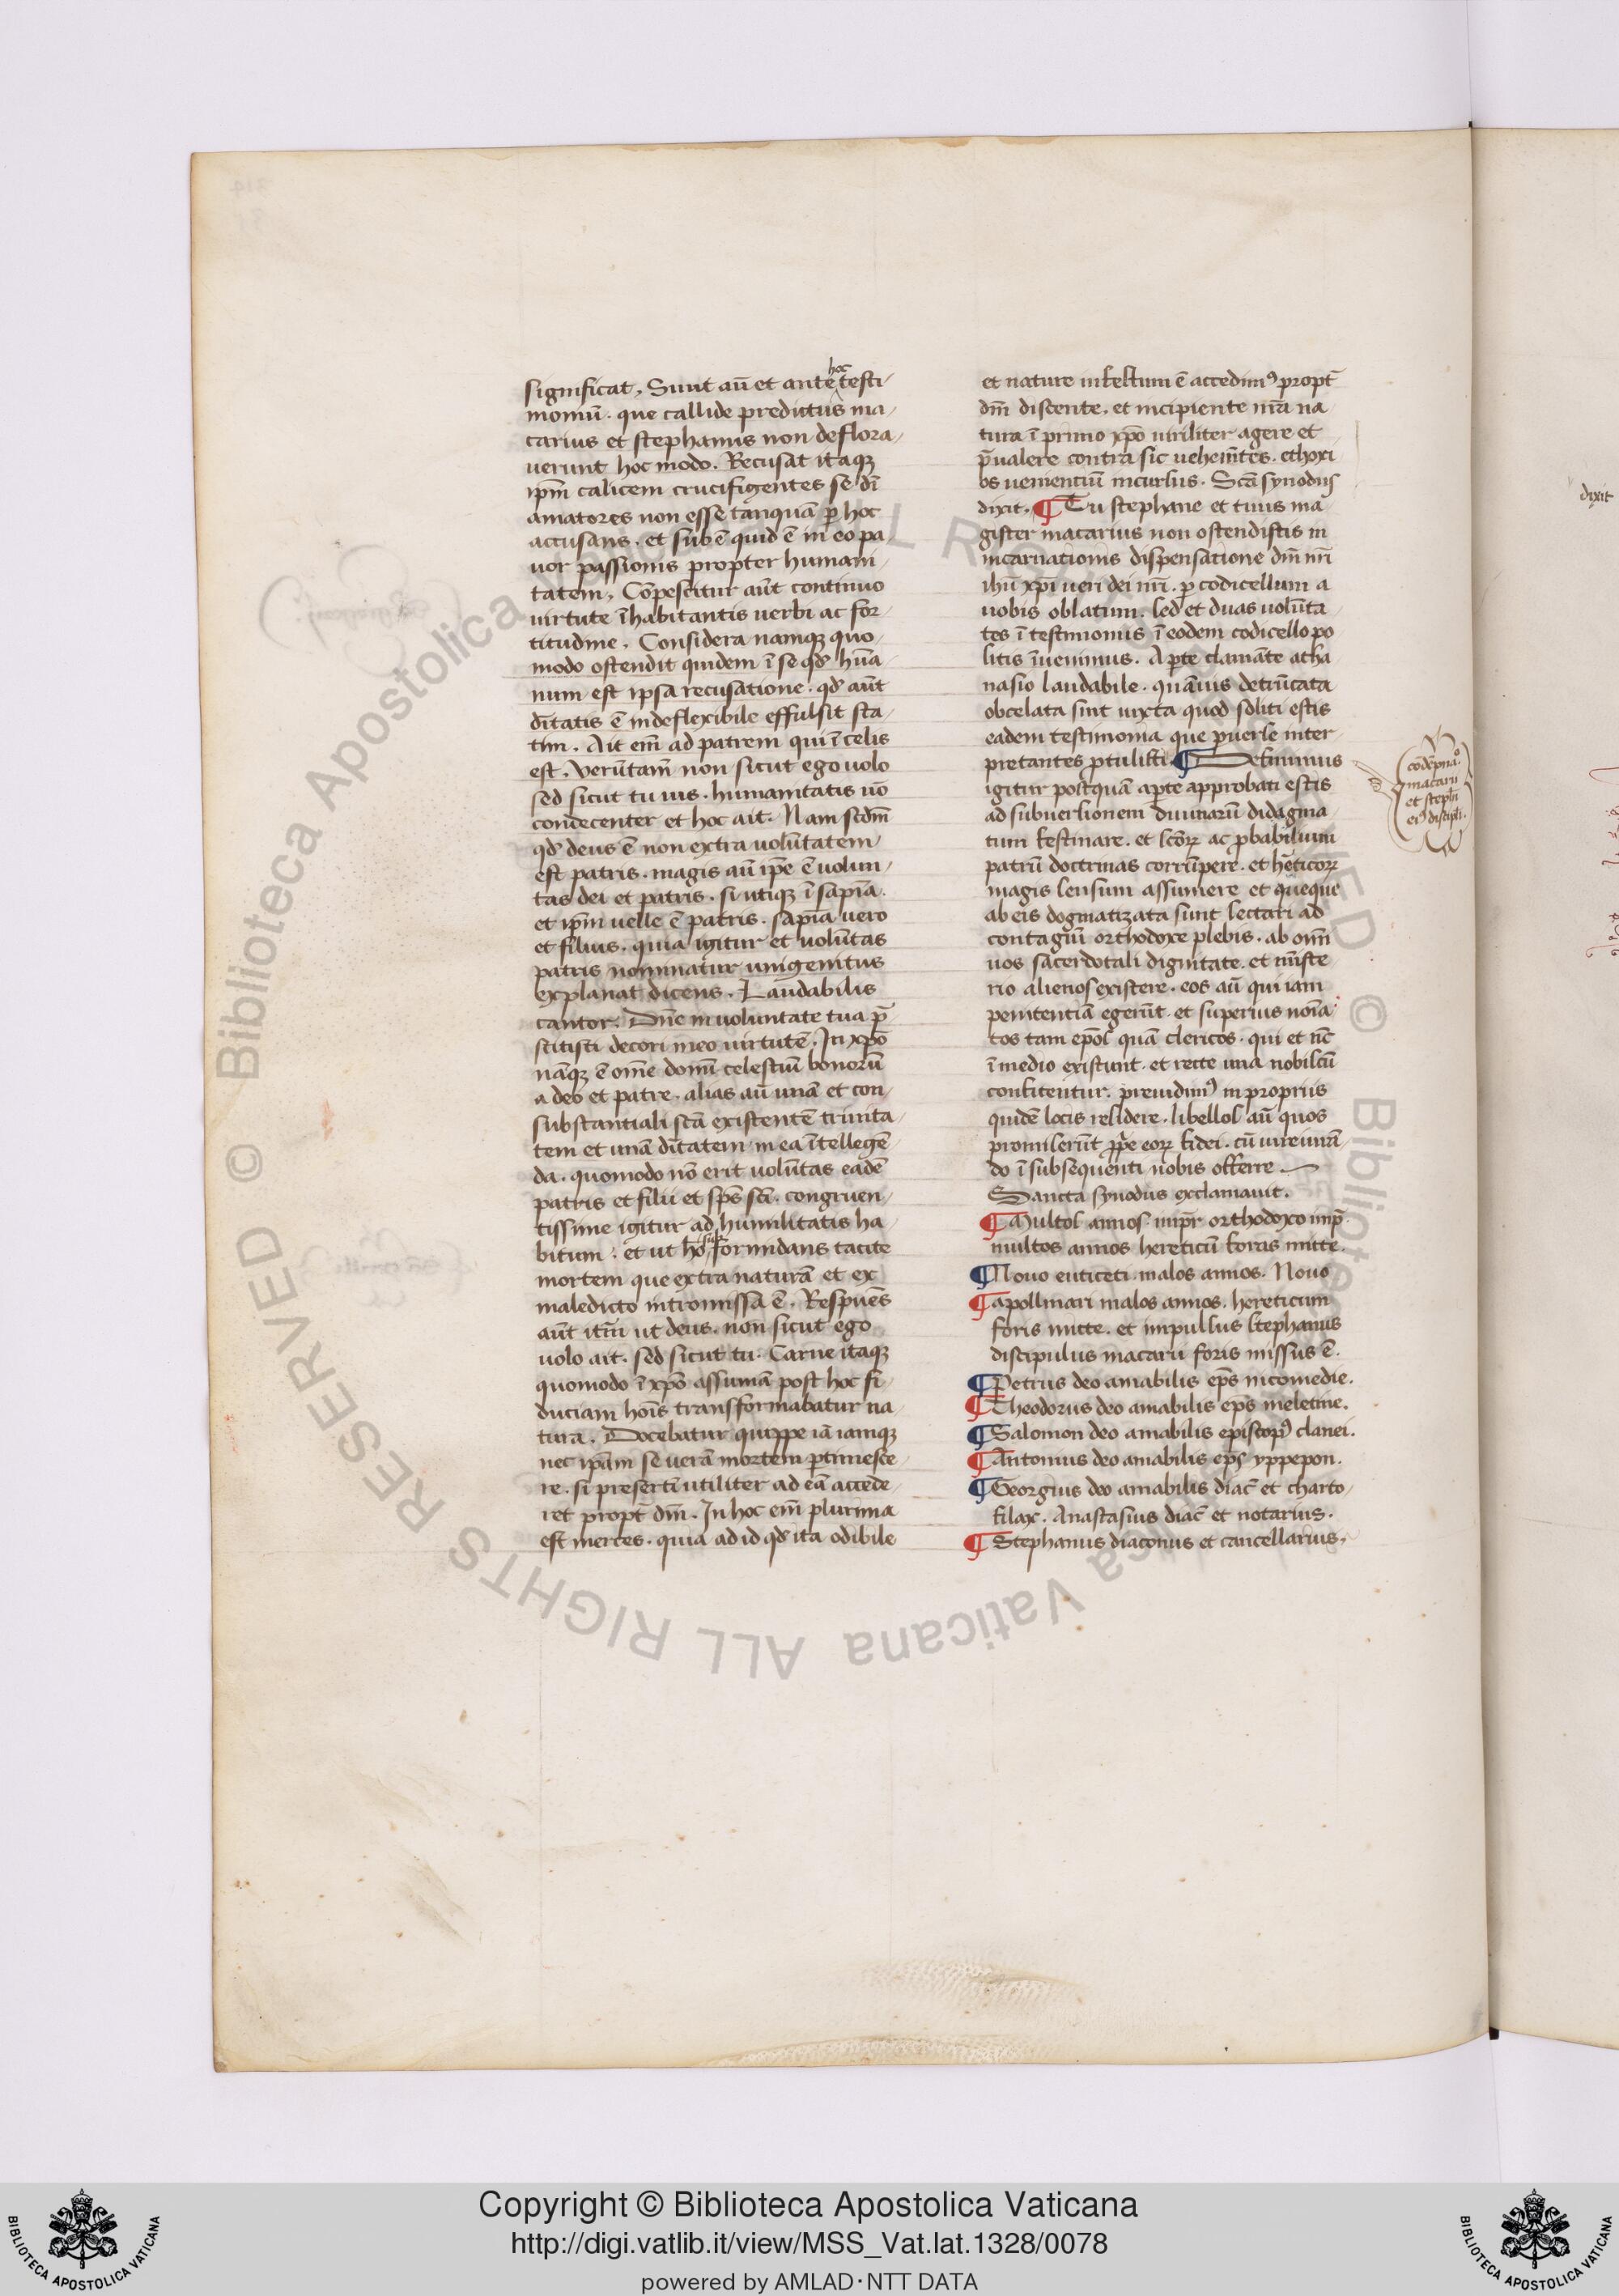 significat. Sunt aū et ante hoc testi
moniū. que callide preditus ma
carius et stephanus non deflora
uerunt hoc modo. Recusat itaqꝫ
ipm̄ calicem crucifigentes se dī
amatores non esse tanquā ꝑ hoc
accusans. et sub ē quid ē in eo pa
uor passionis propter humani
tatem. Cōpescitur aūt continuo
uirtute īhabitantis uerbi ac for
titudine. Considera namqꝫ quo
modo ostendit quidem ī se qd' hūa
num est ipsa recusatione. qd' aūt
dītatis ē indeflexibile effulsit sta
tim. Ait em̄ ad patrem qui ī celis
est. verūtam̄ non sicut ego uolo
sed sicut tu uis. humanitatis uō
condecenter et hoc ait. Nam scdm̄
qd' deus ē non extra uolūtatem
est patris. magis aū ipē ē uolun
tas dei et patris. si utiqꝫ ī sapīa.
et ipm̄ uelle ē patris. sapīa uero
et filius. quia igitur et uolūtas
patris nominatur unigenitus
explanat dicens. Laudabilis
cantor. Dn̄e in uoluntate tua p̄
stitisti decori meo uirtutē. In xp̄o
nāqꝫ ē om̄e domū celestiū bonorū
a deo et patre. alias aū unā et con
substantiali scā existentē trinita
tem et unā dītatem in ea ītellegē
da. quomodo nō erit uolūtas eadē
patris et filii et sp̄s scī. congruen
tissime igitur ad humilitatis ha
bitum. et ut hō formidans tacite
mortem que extra naturā et ex
maledicto intromissa ē. Respuēs
aūt itm̄ ut deus. non sicut ego
uolo ait. sed sicut tu. Carne itaqꝫ
quomodo ī xp̄o assumā post hoc fi
duciam hoīs transformabatur na
tura. Docebatur quippe iā iamqꝫ
nec ipām se uerā mortem ꝑtimesce
re. si presertī utiliter ad eā accede
ret propt̄ dm̄. In hoc em̄ plurima
est merces. quia ad id qd' ita odibile
et nature infestum ē accedimꝰ propt̄
dm̄ discente. et incipiente nrā na
tura ī primo xp̄o uiriliter agere et
p̄ualere contra sic uehemtēs. et hoxi
bs uementiū incursus. Scā synodus
dixit. ¶ Tu stephane et tuus ma
gister macarius non ostendistis in
incarnationis dispensatione dm̄ nrī
ihū xp̄i ueri dei nrī. ꝑ codicellum a
uobis oblatum. sed et duas uolūta
tes ī testimoniis ī eodem codicello po
litis īuenimus. Aperte clamāte atha
nasio laudabile. quāuis detrūcata
obcelata sint iuxta quod soliti estis
eadem testimonia que peruerse inter
pretantes ꝑtulisti. ¶ Definimus
igitur postquā aperte approbati estis
ad subuersionem diuinarū didagma
tum festinare. et scōrꝝ ac probabilium
patrū doctrinas corrūpere. et hēticorꝝ
magis sensum assumere et queque
ab eis dogmatizata sunt sectari ad
contagiū orthodoxe plebis. ab om̄i
uos sacerdotali dignitate. et mīste
rio alienos existere. eos aū qui iam
penitentiā egerūt. et superius noīa
tos tam ep̄os quā clericos. qui et nc̄
ī medio existunt. et recte una nobiscū
confitentur. preuidimꝰ in propriis
quidē locis residere. libellos aū quos
promiserūt prope eorꝝ fidei. cū iureiurā
do ī subsequenti nobis offerre
Sancta synodus exclamauit.
¶ Multos annos impr̄ orthodoxo imp̄.
multos annos hereticū foras mitte.
¶ Nouo euticeti malos annos. Nouo
¶ apollinari malos annos. hereticum
foris mitte. et impulsus stephanus
discipulus macarii foris missus ē.
¶ Petrus deo amabilis ep̄s nicomedie.
¶ Theodorus deo amabilis ep̄s meletine.
¶ Salomon deo amabilis episcopꝰ clanei.
¶ Antonius deo amabilis ep̄s yppepon.
¶ Georgius deo amabilis diac̄ et charto
filax. Anastasius diac̄ et notarius.
¶ Stephanus diaconus et cancellarius.
codēpnāo
macarii
et steph̄i
eiꝰ discipli.
dixit
© Biblioteca Apostolica Vaticana ALL RIGHTS RESERVED
Copyright © Biblioteca Apostolica Vaticana
http://digi.vatlib.it/view/MSS_Vat.lat.1328/0078
powered by AMLAD·NTT DATA
BIBLIOTECA APOSTOLICA VATICANA
BIBLIOTECA APOSTOLICA VATICANA